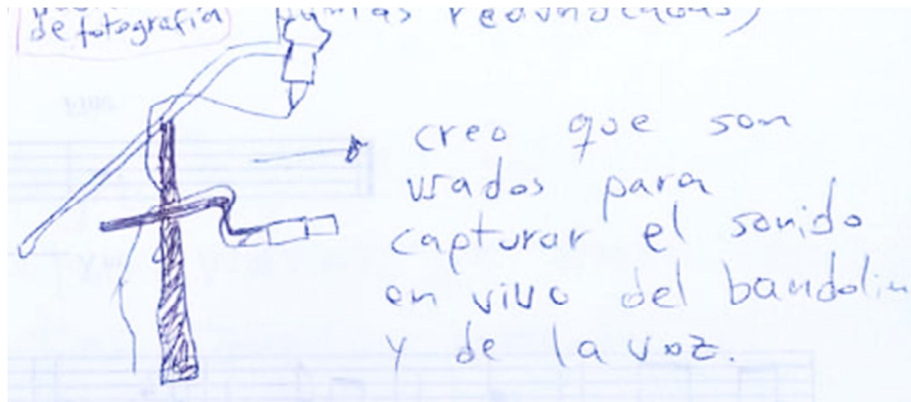 de fotografía
puntas redondeadas)
creo que son
usados para
capturar el sonido
en vivo del bandolin
y de la voz.